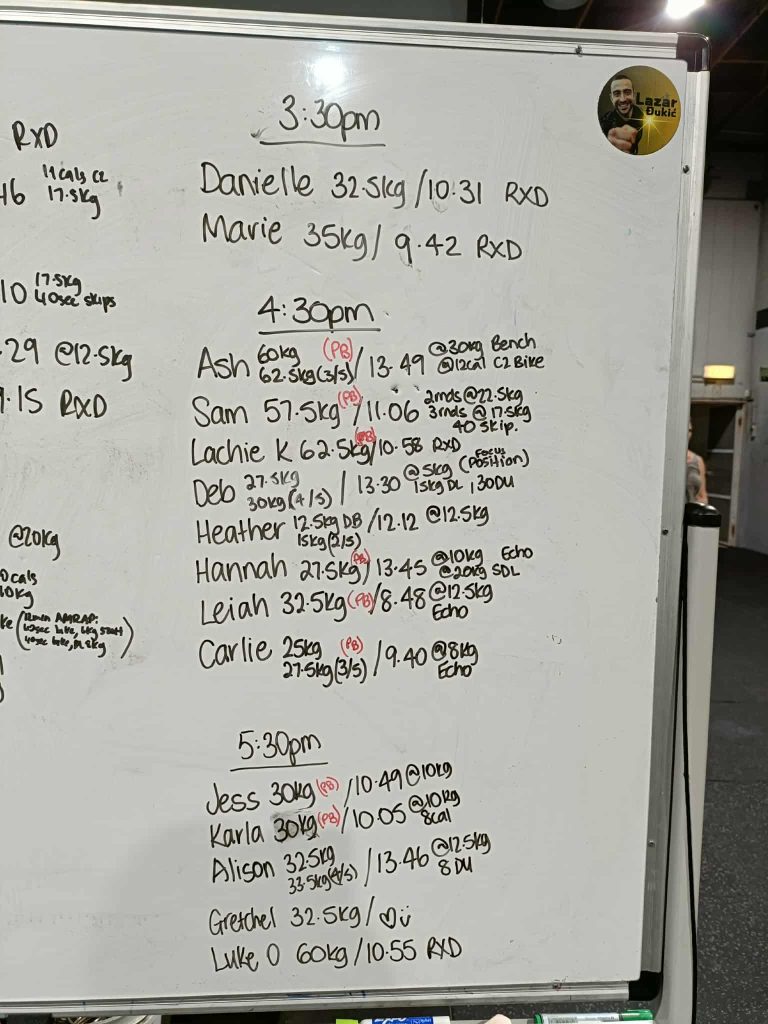 RXD
46 11cals C2
17.5kg
10 17.5kg
40sec skips
.29 @12.5kg
9.15 RXD
@20kg
0cals
10kg
3:30pm
Danielle 32.5kg/10.31 RXD
Marie 35kg/ 9.42 RXD
4:30pm
Ash 60kg (PB) / 13.49 @30kg Bench
62.5kg(3/5) @12cal C2 Bike
Sam 57.5kg (PB) /11.06 2rnds@22.5kg
3rnds @ 17.5kg
40 skip.
Lachie K 62.5kg (PB) /10.58 RXD
Deb 27.5kg / 13.30 @5kg (Focus POSition)
30kg(4/5) 15kg DL , 30DU
Heather 12.5kg DB /12.12 @12.5kg
15kg(2/5)
Hannah 27.5kg (PB) / 13.45 @10kg Echo
@20kg SDL
Leiah 32.5kg (PB) /8.48 @12.5kg
Echo
Carlie 25kg (PB) /9.40 @8kg
27.5kg(3/5) Echo
5:30pm
Jess 30kg (PB) /10.49 @10kg
Karla 30kg (PB) /10.05 @10kg
8cal
Alison 32.5kg /13.46 @12.5kg
33.5kg(4/5) 8 DU
Gretchel 32.5kg/
Luke O 60kg/10.55 RXD
Lazar
Đukić